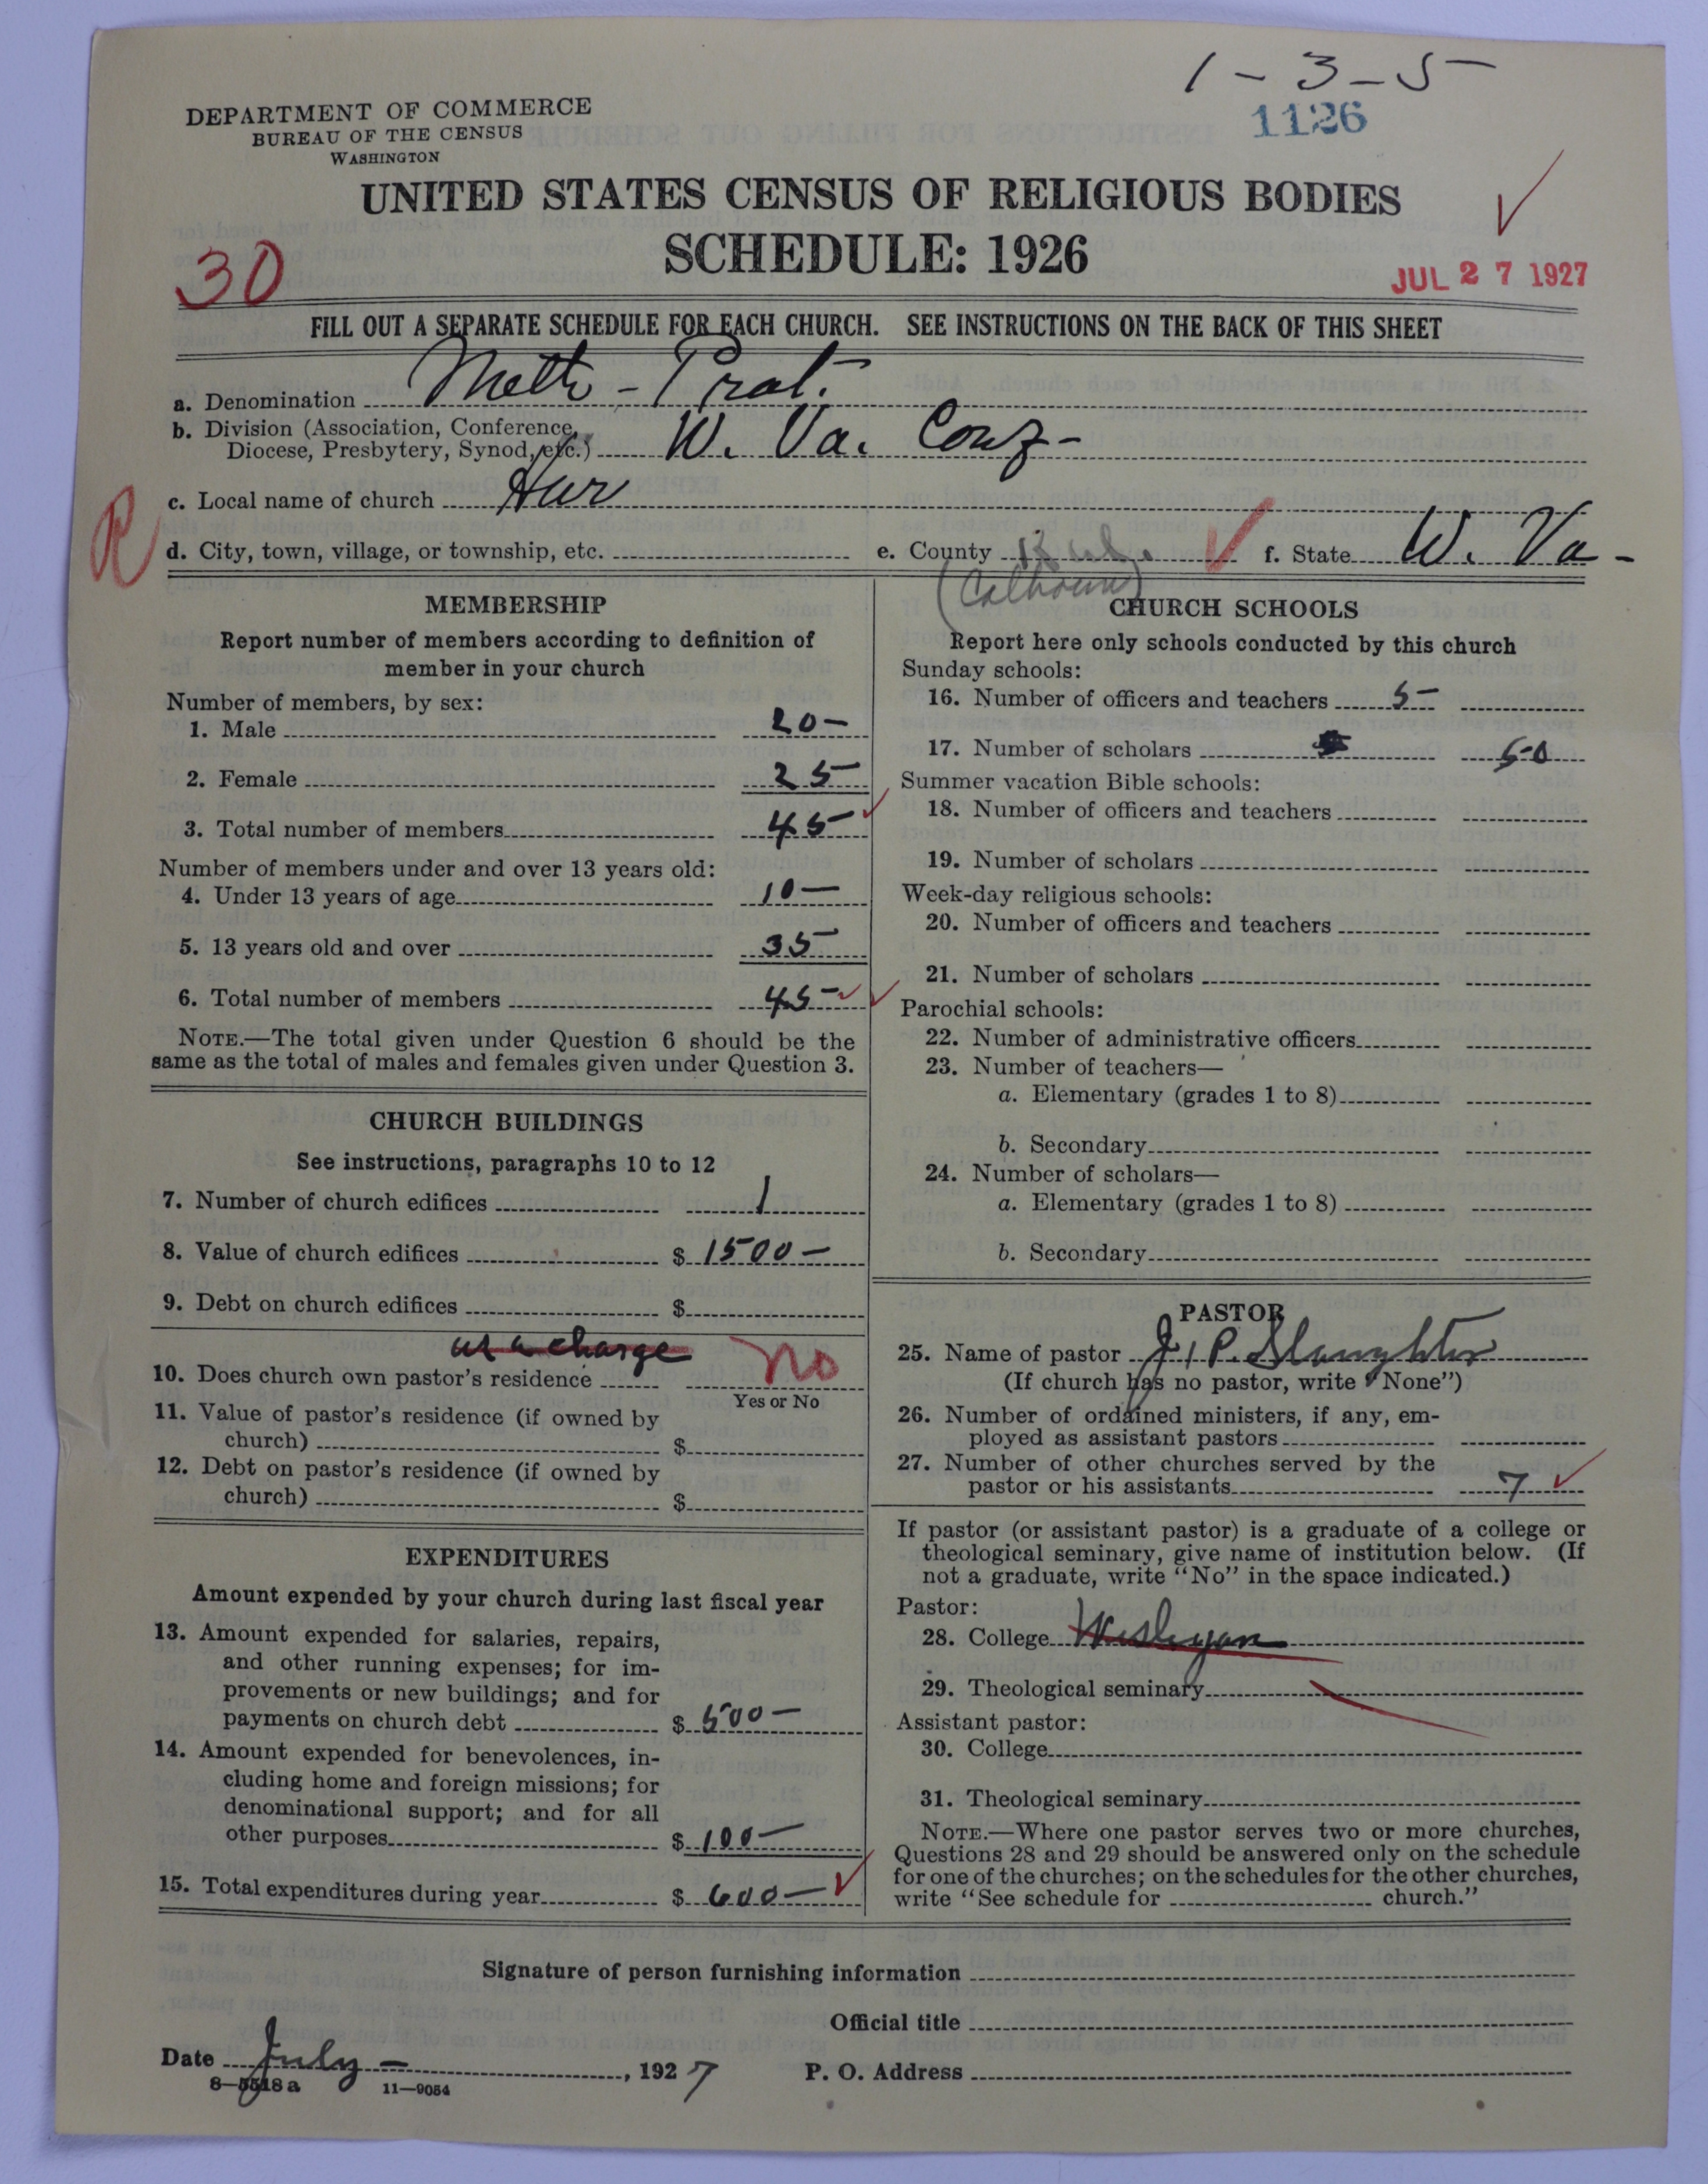 1-3-5
DEPARTMENT OF COMMERCE
BUREAU OF THE CENSUS
WASHINGTON
1126
UNITED STATES CENSUS OF RELIGIOUS BODIES
SCHEDULE: 1926
30
JUL 27 1927
FILL OUT A SEPARATE SCHEDULE FOR EACH CHURCH. SEE INSTRUCTIONS ON THE BACK OF THIS SHEET
a. Denomination Meth-Prot.
b. Division (Association, Conference,
Diocese, Presbytery, Synod, etc.) W. Va. Conf-
c. Local name of church Hur
R
d. City, town, village, or township, etc. e. County f. State W. Va-
(Calhoun)
MEMBERSHIP
Report number of members according to definition of
member in your church
Number of members, by sex:
1. Male 20-
2. Female 25
3. Total number of members 45
Number of members under and over 13 years old:
4. Under 13 years of age 10-
5. 13 years old and over 35
6. Total number of members 45-
NOTE.—The total given under Question 6 should be the
same as the total of males and females given under Question 3.
CHURCH BUILDINGS
See instructions, paragraphs 10 to 12
7. Number of church edifices 1
8. Value of church edifices $ 1500-
9. Debt on church edifices $
as a charge No
10. Does church own pastor's residence
Yes or No
11. Value of pastor's residence (if owned by
church) $
12. Debt on pastor's residence (if owned by
church) $
EXPENDITURES
Amount expended by your church during last fiscal year
13. Amount expended for salaries, repairs,
and other running expenses; for im-
provements or new buildings; and for
payments on church debt $ 500-
14. Amount expended for benevolences, in-
cluding home and foreign missions; for
denominational support; and for all
other purposes $ 100-
15. Total expenditures during year $ 600-
CHURCH SCHOOLS
Report here only schools conducted by this church
Sunday schools:
16. Number of officers and teachers 5-
17. Number of scholars 50
Summer vacation Bible schools:
18. Number of officers and teachers
19. Number of scholars
Week-day religious schools:
20. Number of officers and teachers
21. Number of scholars
Parochial schools:
22. Number of administrative officers
23. Number of teachers—
a. Elementary (grades 1 to 8)
b. Secondary
24. Number of scholars—
a. Elementary (grades 1 to 8)
b. Secondary
PASTOR
25. Name of pastor J. P. Slaughter
(If church has no pastor, write "None")
26. Number of ordained ministers, if any, em-
ployed as assistant pastors
27. Number of other churches served by the
pastor or his assistants 7
If pastor (or assistant pastor) is a graduate of a college or
theological seminary, give name of institution below. (If
not a graduate, write "No" in the space indicated.)
Pastor:
28. College Wesleyan
29. Theological seminary
Assistant pastor:
30. College
31. Theological seminary
NOTE.—Where one pastor serves two or more churches,
Questions 28 and 29 should be answered only on the schedule
for one of the churches; on the schedules for the other churches,
write "See schedule for church."
Signature of person furnishing information
Official title
Date July - , 1927 P. O. Address
8—5518 a 11—9054